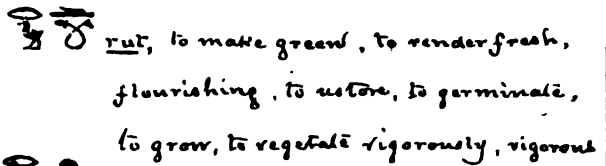 rut, to make green, to render fresh,
flourishing, to restore, to germinate,
to grow, to vegetate vigorously, vigorous